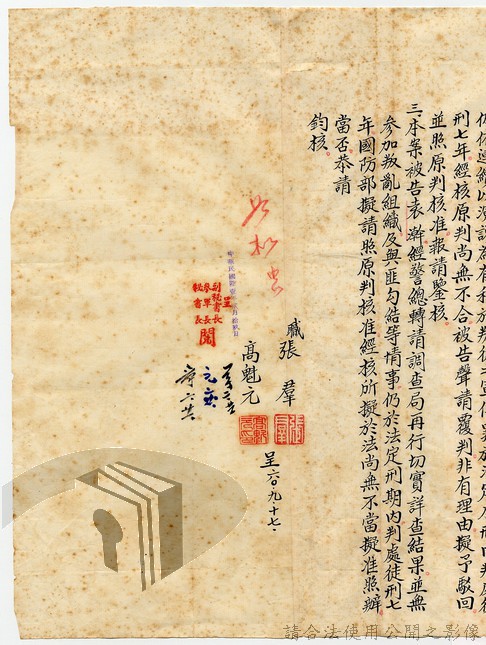 刑七年經核原判尚無不合被告聲請覆判非有理由擬予駁回
並照原判核准報請鑒核
三、本案被告袁瀞經警總轉請調查局再行切實詳查結果並無
參加叛亂組織及與匪勾結等情事仍於法定刑期內判處徒刑七
年國防部擬請照原判核准經核所擬於法尚無不當擬准照辦
當否恭請
鈞核
職張羣
高魁元
呈六〇、九、十七、
如擬
呈
副秘書長
參軍長
秘書長
閱
請合法使用公開之影像